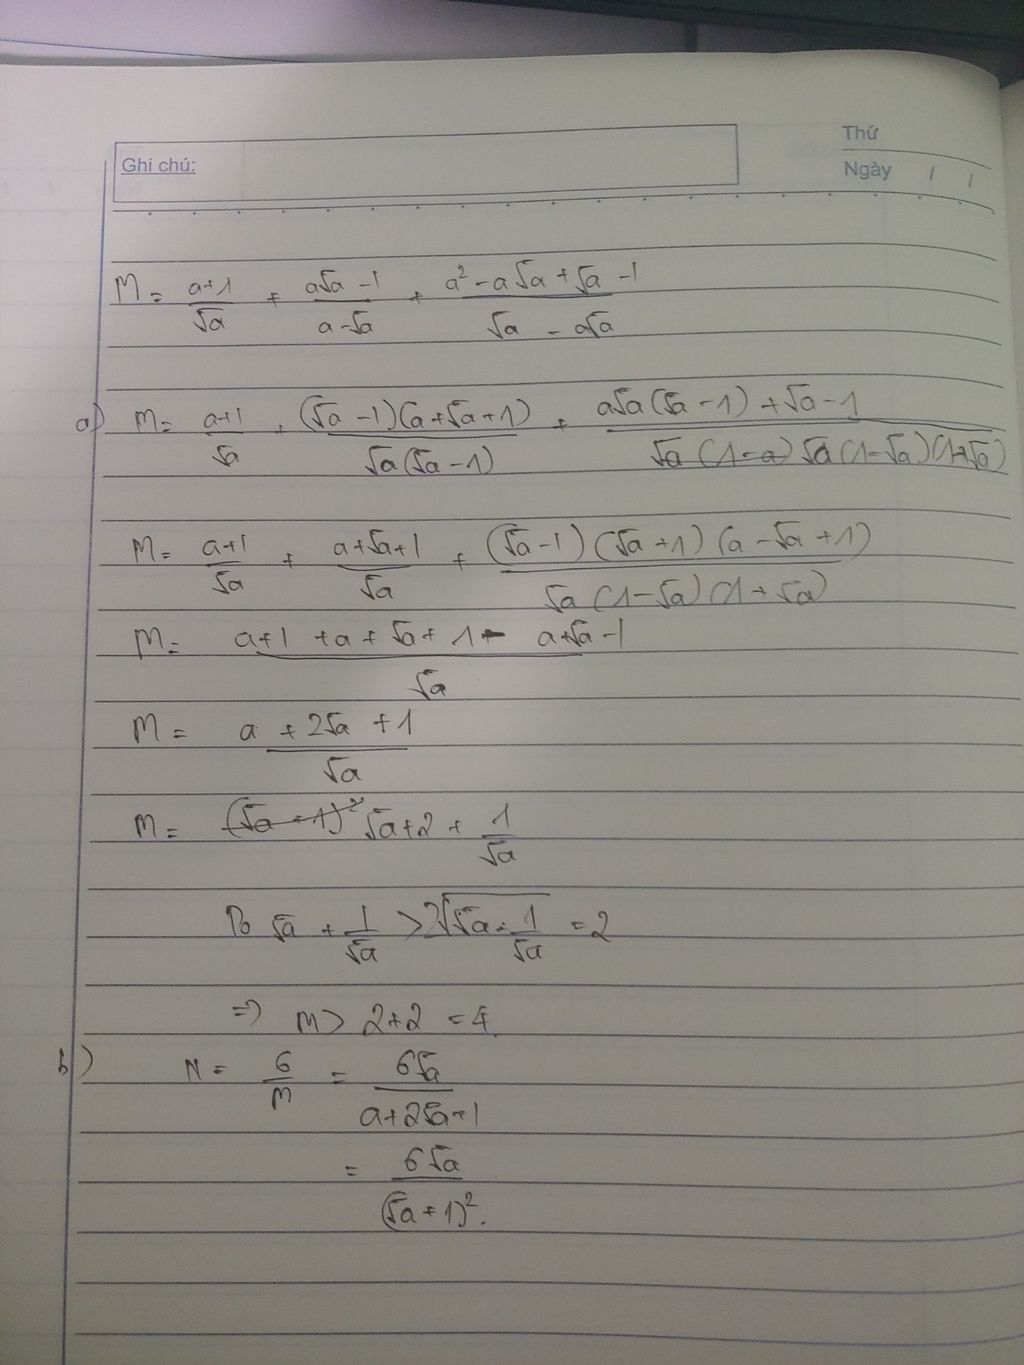 Thứ
Ghi chú:
Ngày / /
M = (a+1)/√a + (a√a - 1)/(a-√a) + (a² - a√a + √a - 1)/(√a - a√a)
a) M = (a+1)/√a + (√a - 1)(a+√a+1)/(√a(√a - 1)) + (a√a(√a - 1) + √a - 1)/(√a(1-√a)(1+√a))
M = (a+1)/√a + (a+√a+1)/√a + (√a - 1)(√a + 1)(a - √a + 1)/(√a(1-√a)(1+√a))
M = (a+1 + a + √a + 1 - a + √a - 1)/√a
M = (a + 2√a + 1)/√a
M = √a + 2 + 1/√a
Do √a + 1/√a > 2√(√a · 1/√a) = 2
=> M > 2+2 = 4.
b) N = 6/M = 6√a/(a+2√a+1)
= 6√a/(√a+1)².